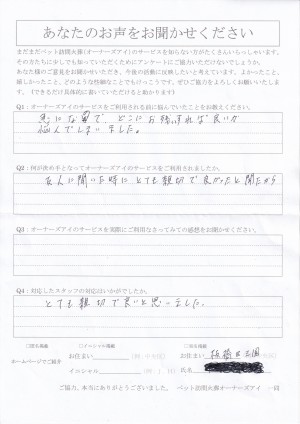 あなたのお声をお聞かせください
まだまだペット訪問火葬(オーナーズアイ)のサービスを知らない方がたくさんいらっしゃいます。
その方たちに少しでも知っていただくためにアンケートにご協力いただけないでしょうか。
あなた様のご意見をお聞かせいただき、今後の活動に反映したいと考えています。よかったこと、
嬉しかったこと、どのような些細なことでもけっこうです。ぜひご協力をよろしくお願いいたします。
(できるだけ具体的に書いていただけると助かります)
Q1：オーナーズアイのサービスをご利用される前に悩んでいたことをお教えください。
急にな事で、どこにお願いすれば良いか
悩んでしまいました。
Q2：何が決め手となってオーナーズアイのサービスをご利用されましたか。
友人に聞いた時にとても親切で良かったと聞たから
Q3：オーナーズアイのサービスを実際にご利用なさってみての感想をお聞かせください。
Q4：対応したスタッフの対応はいかがでしたか。
とても親切で良いと思いました。
□匿名掲載 □イニシャル掲載 □実名掲載
ホームページでご紹介
お住まい
お住まい 板橋区
イニシャル
氏名
ご協力、本当にありがとうございました。 ペット訪問火葬オーナーズアイ 一段